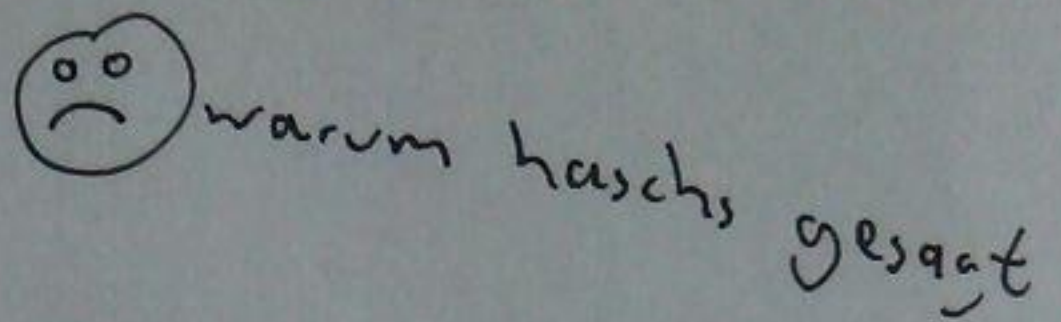 warum haschs gesagt